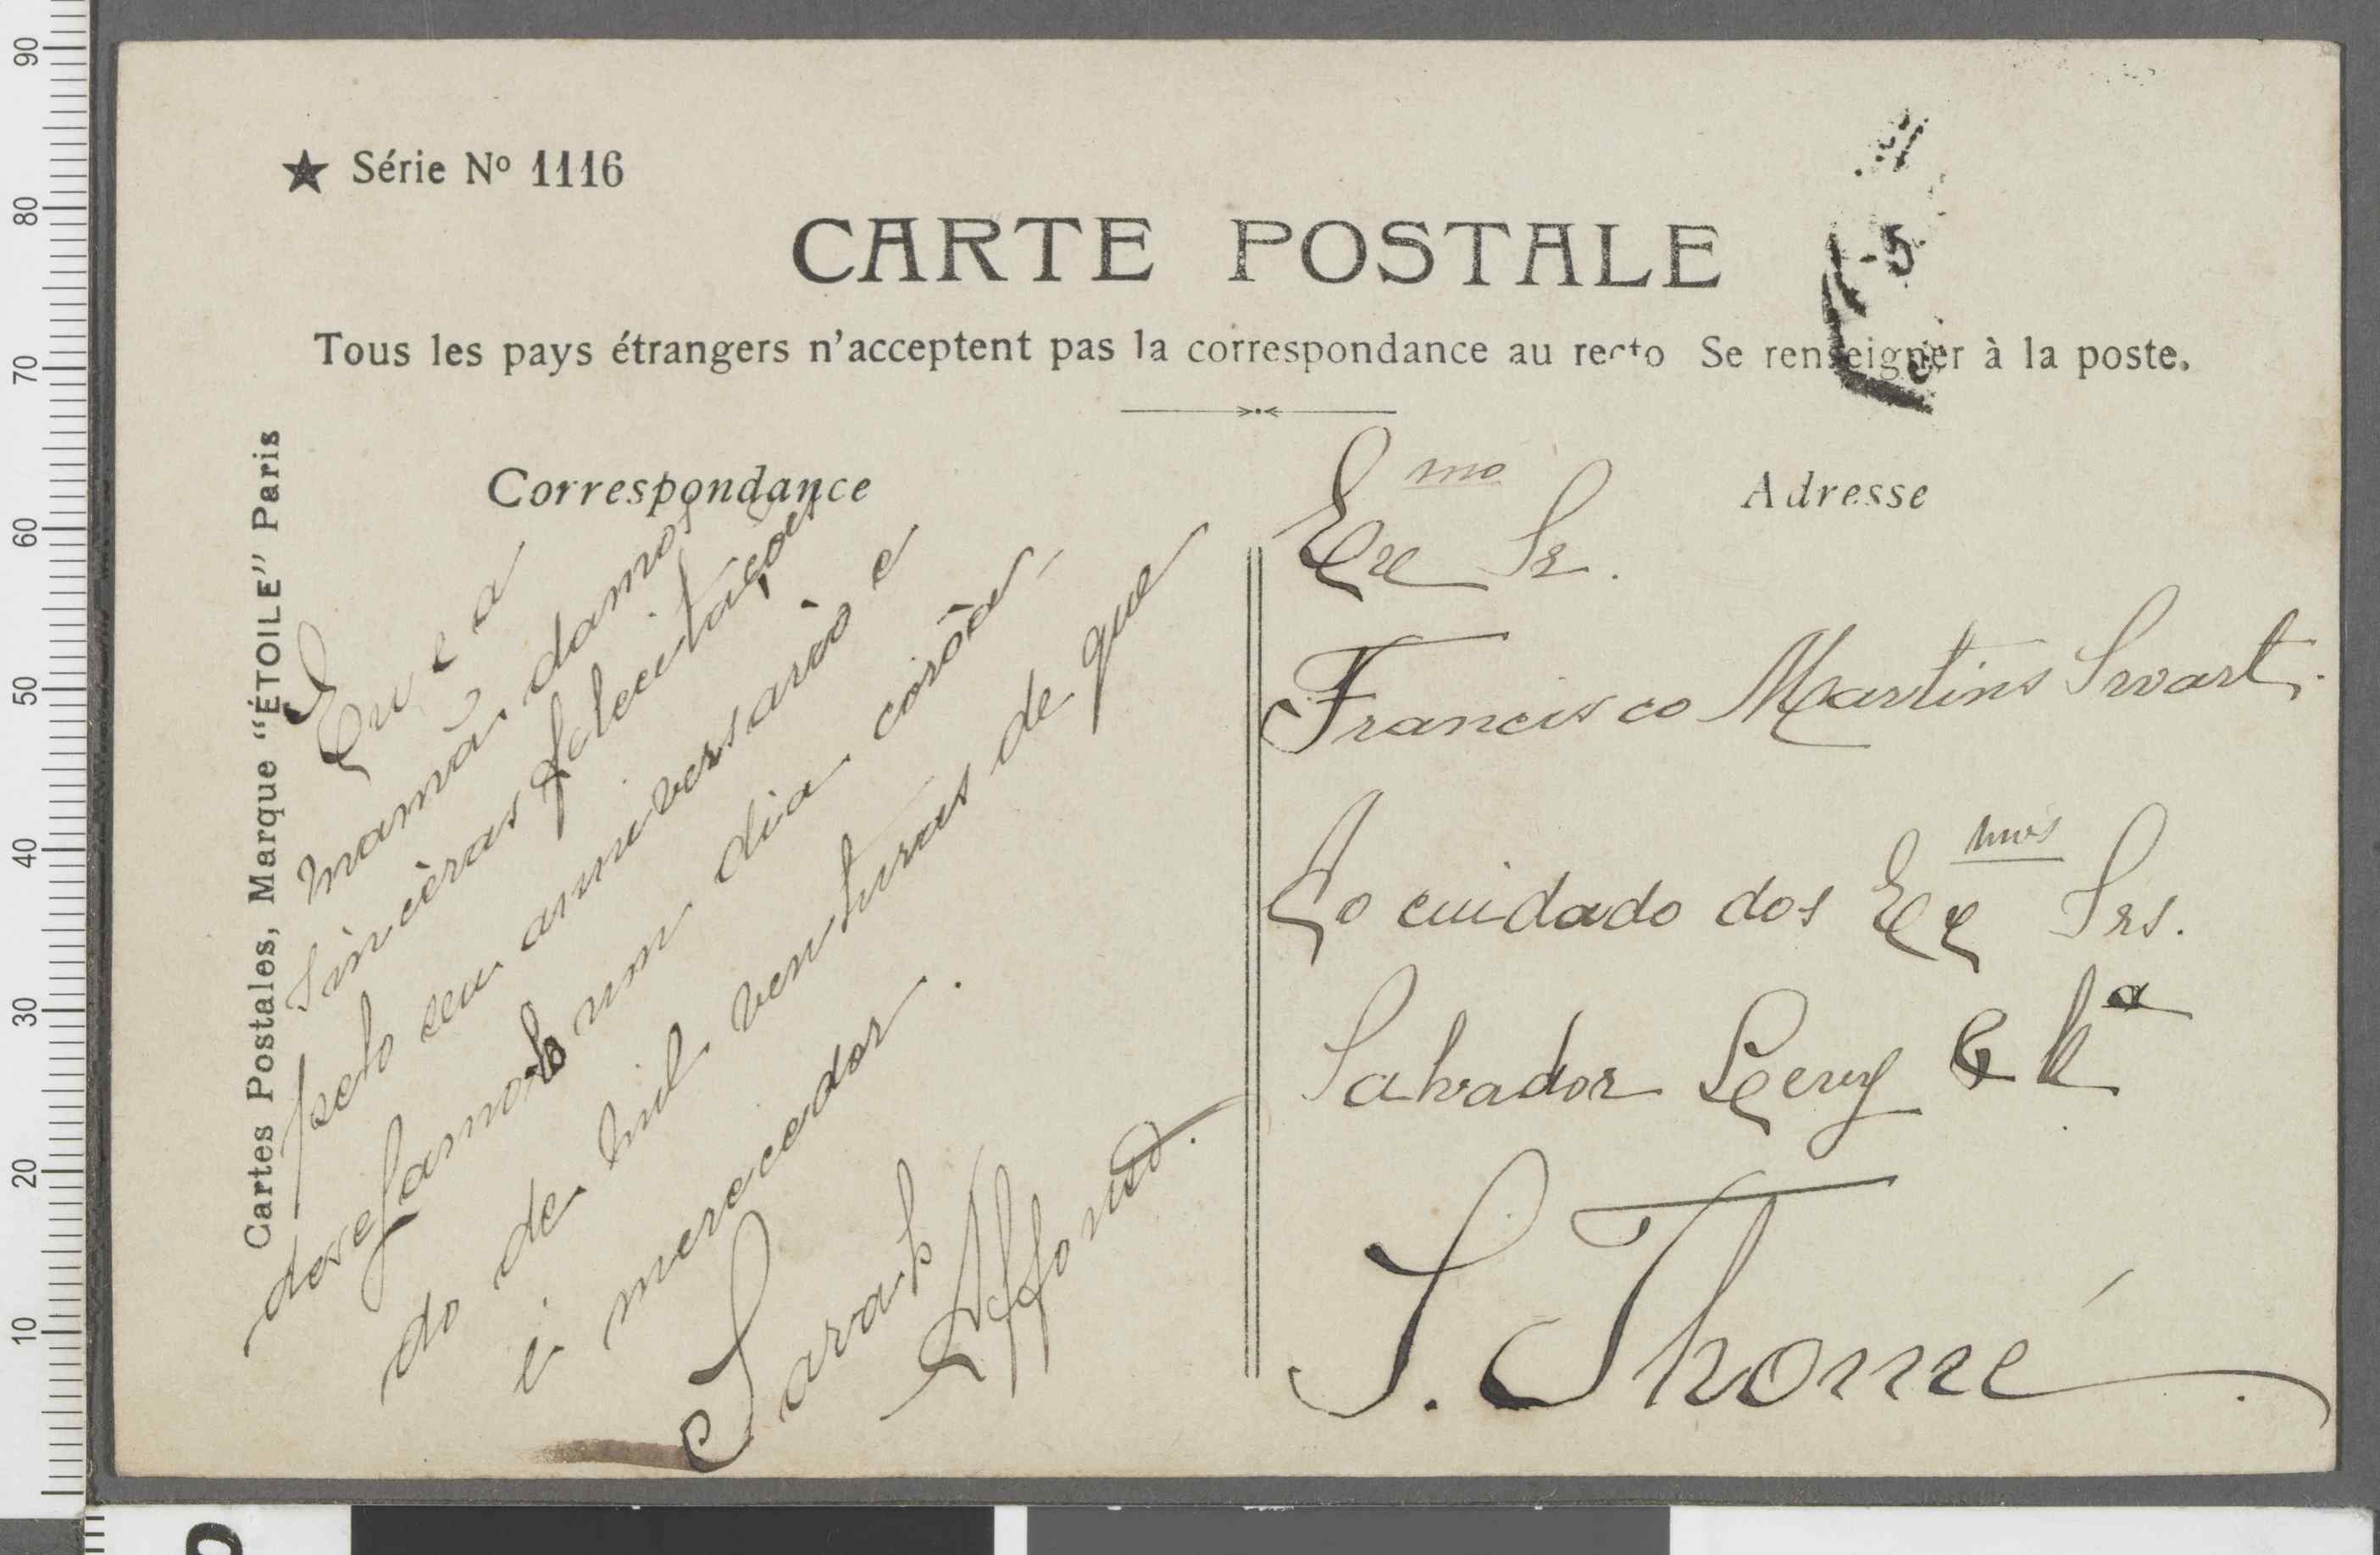 ★ Série Nº 1116
CARTE POSTALE
Tous les pays étrangers n'acceptent pas la correspondance au recto Se renseigner à la poste.
Cartes Postales, Marque "ÉTOILE" Paris
Correspondance
Eu e a
mamã damos
sincèras felecitações
pelo seu anniversario e
desejamos-lo um dia corôa-
do de mil venturas de que
é merecedor.
Sarah
Affonso.
Adresse
Exmo Sr.
Francisco Martins Swart.
Ao cuidado dos Exmos Srs.
Salvador Levy & Ca
S. Thomé.
5
90
80
70
60
50
40
30
20
10